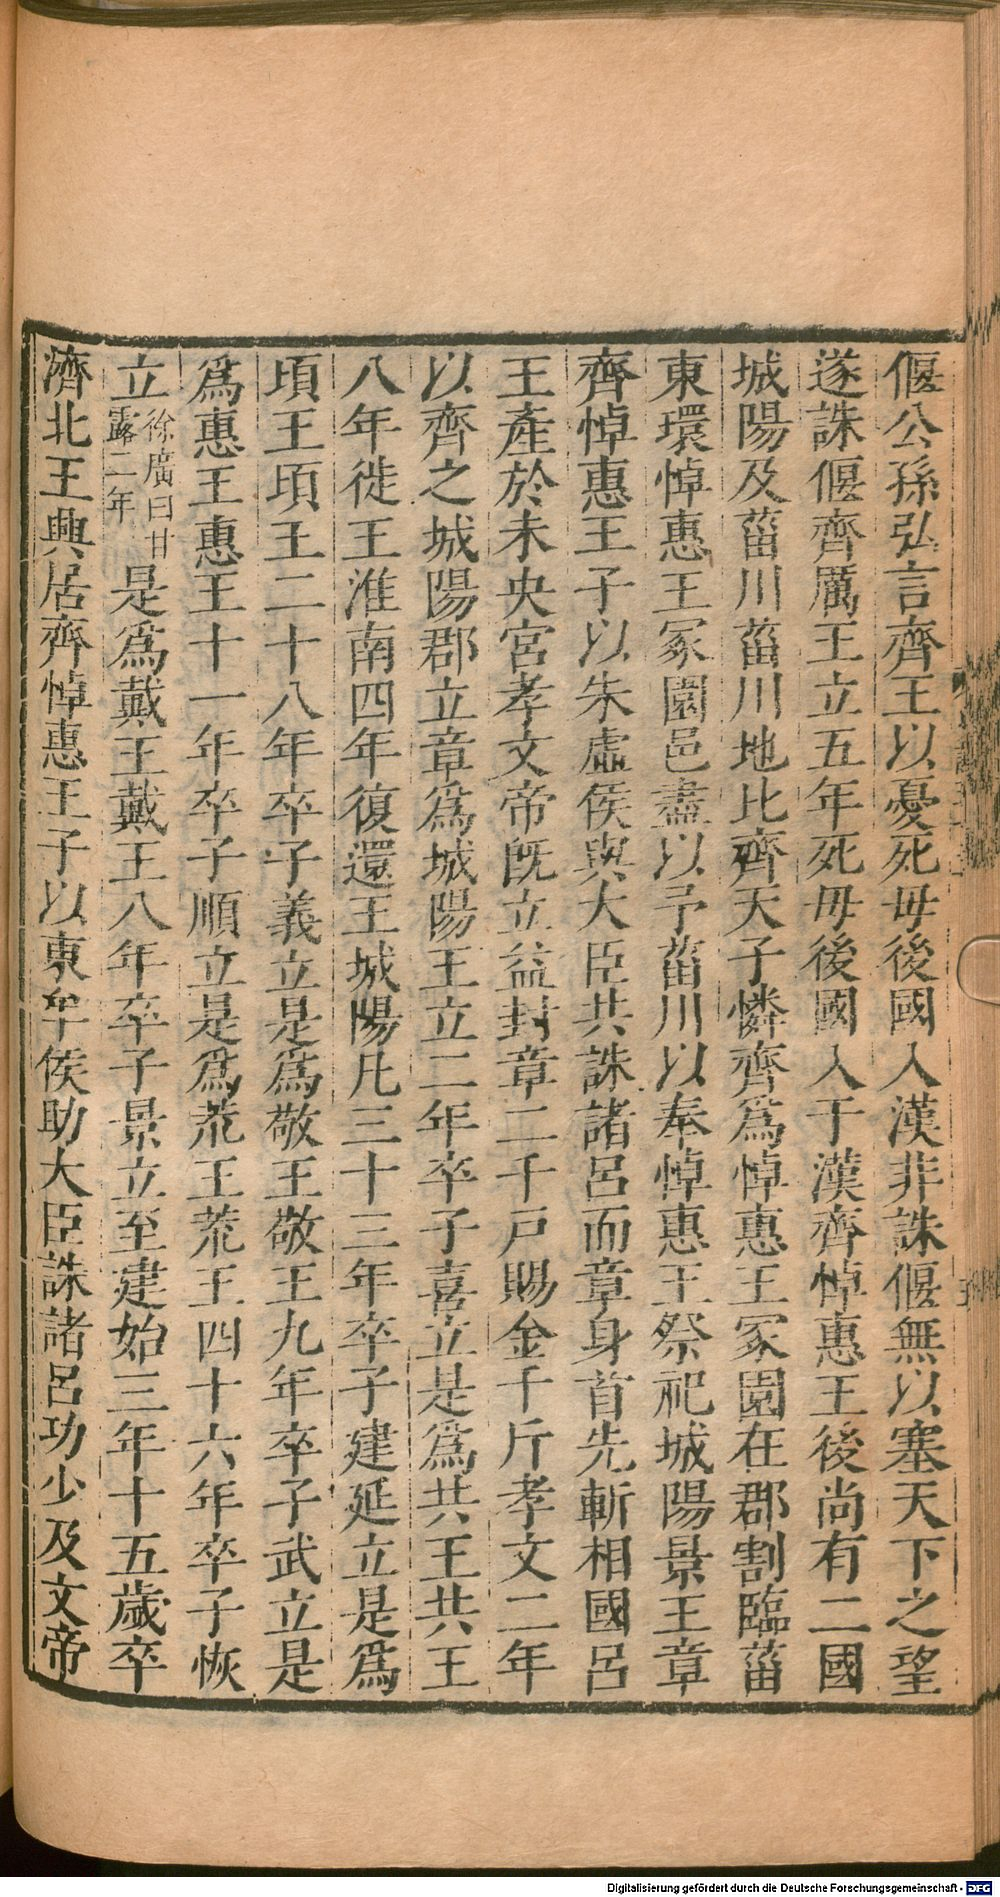 偃公孫弘言齊王以憂死毋後國入漢非誅偃無以塞天下之望
遂誅偃齊厲王立五年死毋後國入于漢齊悼惠王後尚有二國
城陽及菑川菑川地比齊天子憐齊爲悼惠王冢園在郡割臨菑
東環悼惠王冢園邑盡以予菑川以奉悼惠王祭祀城陽景王章
齊悼惠王子以朱虛侯與大臣共誅諸呂而章身首先斬相國呂
王產於未央宮孝文帝既立益封章二千戸賜金千斤孝文二年
以齊之城陽郡立章爲城陽王立二年卒子喜立是爲共王共王
八年徙王淮南四年復還王城陽凡三十三年卒子建延立是爲
頃王頃王二十八年卒子義立是爲敬王敬王九年卒子武立是
爲惠王惠王十一年卒子順立是爲荒王荒王四十六年卒子恢
立徐廣曰甘露二年是爲戴王戴王八年卒子景立至建始三年十五歲卒
濟北王興居齊悼惠王子以東牟侯助大臣誅諸呂功少及文帝
Digitalisierung gefördert durch die Deutsche Forschungsgemeinschaft - DFG